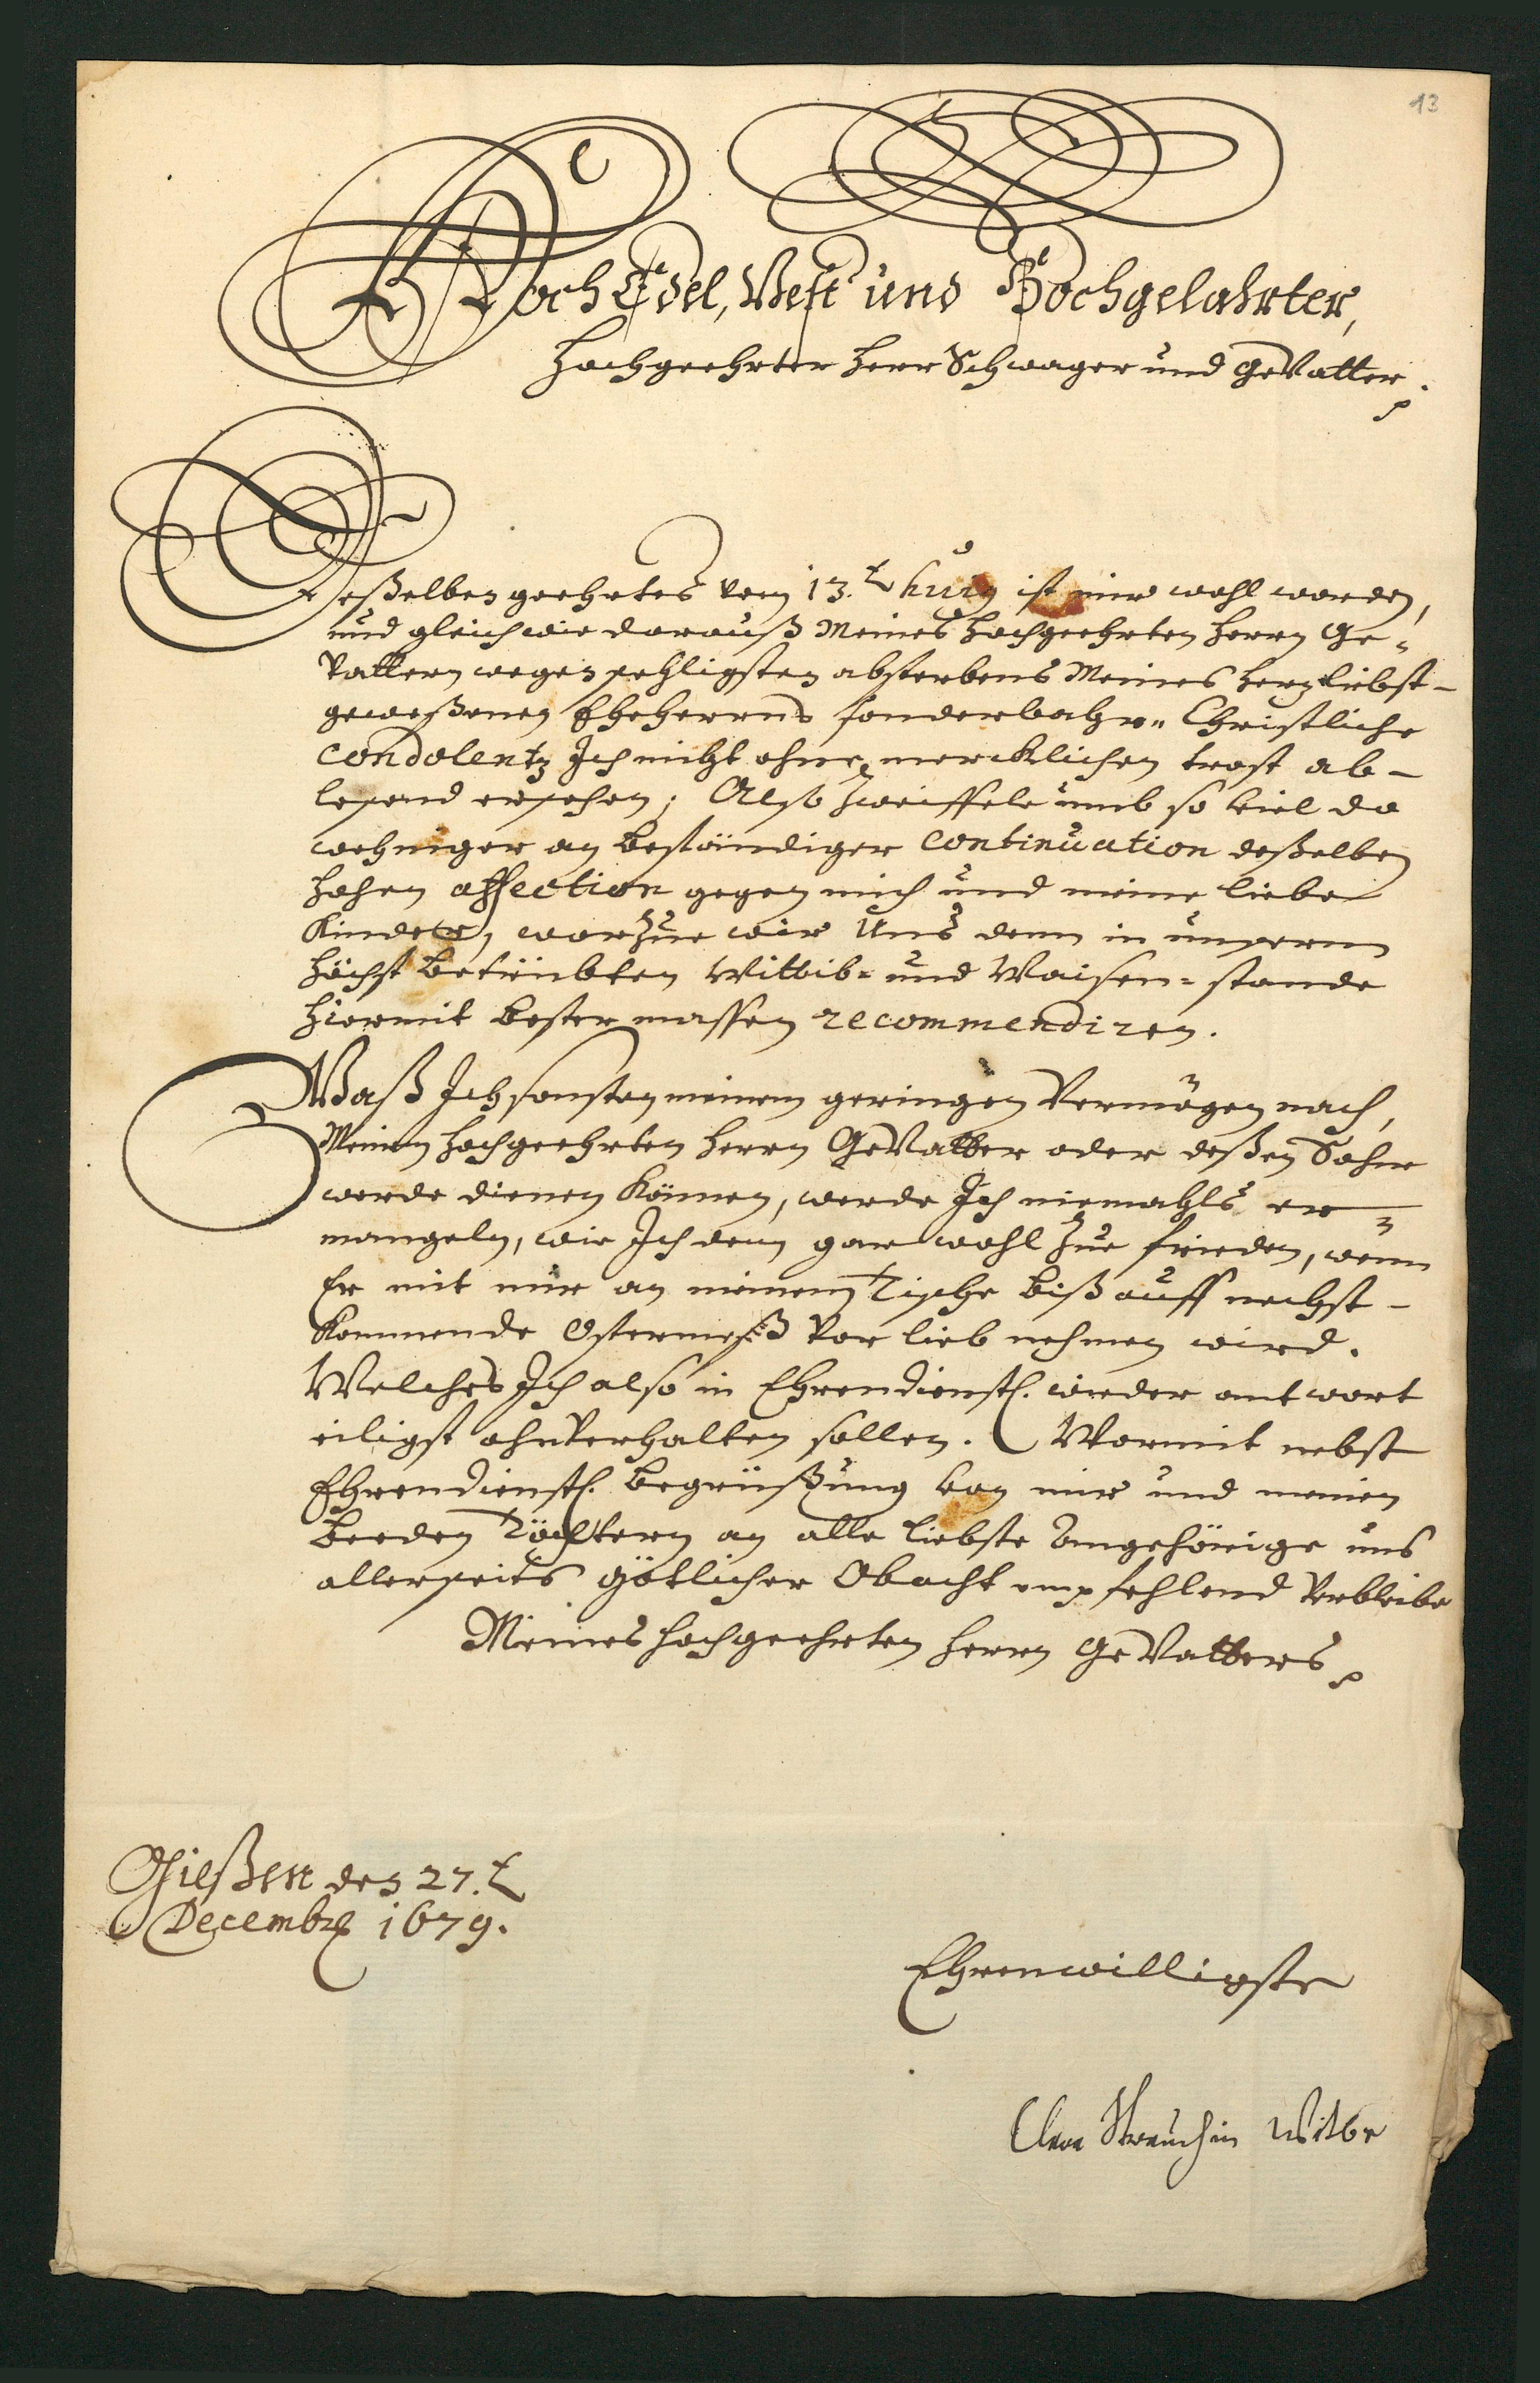 13
HochEdel, Vest und Hochgelahrter,
Hochgeehrter Herr Schwager und GeVatter.
Deßelben geehrtes vom 13.t huig ist mir wohl worden,
und gleich wie darauß Meines Hochgeehrten Herrn Ge-
Vattern wegen sehligsten absterbens Meines Herzliebst-
geweßenen Eheherrns sonderbahr„ Christliche
condolentz Ich nicht ohne mercklichen trost ab-
lesend ersehen; Also zweiffele umb so viel da
wehniger an beständiger continuation deßelben
hohen affection gegen mich und meine liebe
Kinder, worzue wir Uns denn in unserm
höchst betrübten Wittib- und Waisen-stande
hiermit bester massen recommendiren.
Waß Ich sonsten meinem geringen Vermögen nach,
Meinem hochgeehrten Herrn GeVatter oder deßen Sohne
werde dienen können, werde Ich niemahls er-
mangeln, wie Ich denn gar wohl zue frieden, wenn
Er mit mir an meinem Tische biß auff nechst-
kommende Ostermeß vor lieb nehmen wird.
Welches Ich also in Ehrendienstl. wieder antwort
eiligst ohnVerhalten sollen. Wormit nebst
Ehrendienstl. begrüßung von mir und meinen
beeden Töchtern an alle liebste Angehörige uns
allerseits götlicher Obacht empfehlend Verbleibe
Meines hochgeehrten Herrn GeVatters
Gießen den 27.t
Decembr 1679.
Ehrenwilligste
Clara Strauchin Witbe